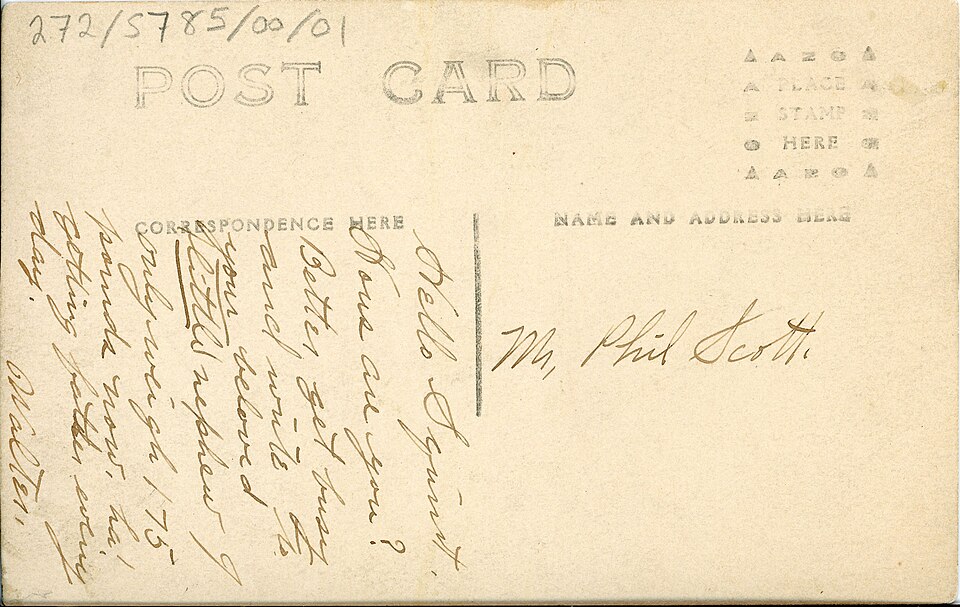 272/5785/00/01
POST CARD
AZO
PLACE
STAMP
HERE
AZO
CORRESPONDENCE HERE
NAME AND ADDRESS HERE
Hello Squint.
Hows are you?
Better get busy
and write to
your beloved
little nephew I
only weigh 175
pounds now, ha!
getting fatter every
day.
Walter.
Mr, Phil Scott.